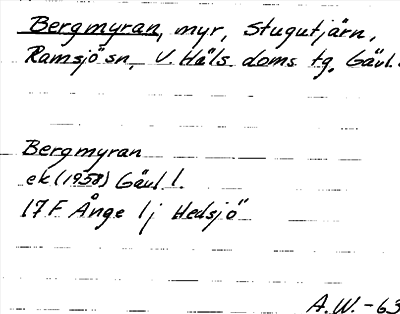 Bergmyran, myr, Stugutjärn,
Ramsjö sn, V. Häls. doms. tg. Gävl.
Bergmyran
ek (1958) Gävl l.
17F Ånge 1j Hedsjö
A.W.-63